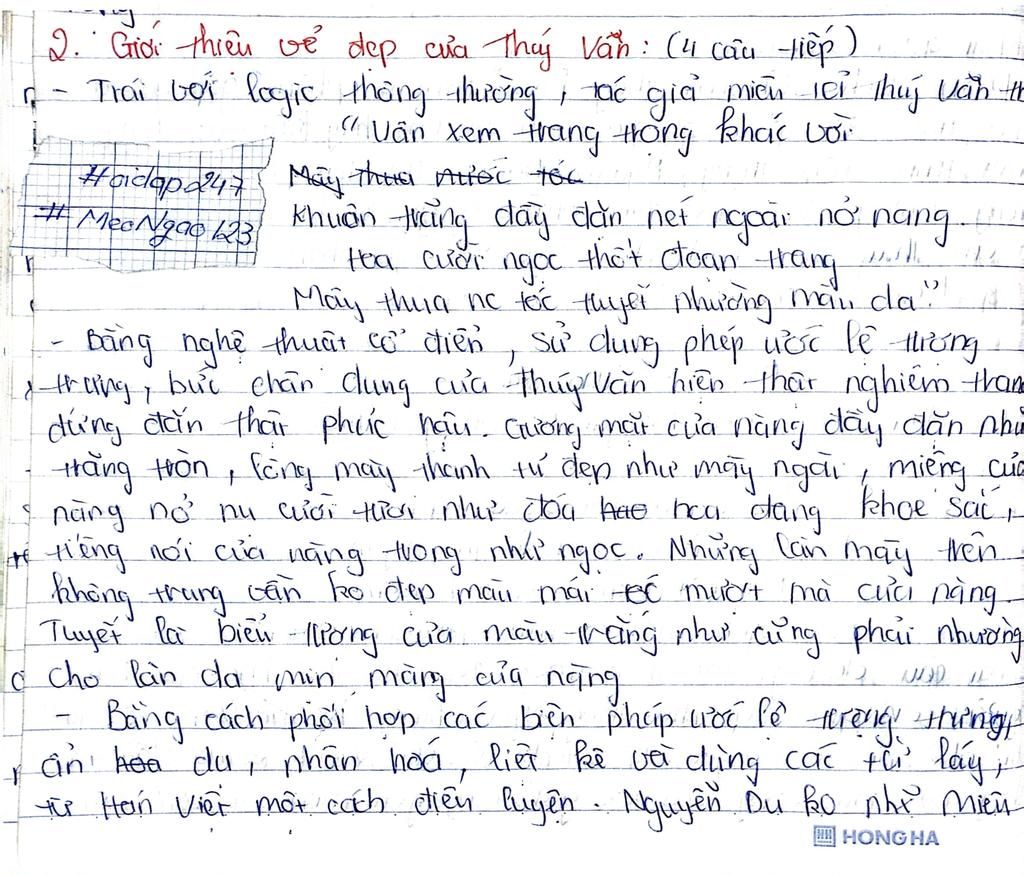 2. Giới thiệu vẻ đẹp của Thuý Vân: (4 câu tiếp)
- Trái với logic thông thường, tác giả miêu tả Thuý Vân
"Vân xem trang trọng khác vời
Mây thua nước tóc
#aidap247
# MeoNgao123
Khuôn trăng đầy đặn nét ngài nở nang.
Hoa cười ngọc thốt đoan trang
Mây thua nc tóc tuyết nhường màu da"
- Bằng nghệ thuật cổ điển, sử dụng phép ước lệ tượng
trưng, bức chân dung của Thuý Vân hiện thật nghiêm tran
đứng đắn thật phúc hậu. Gương mặt của nàng đầy đặn như
trăng tròn, lông mày thanh tú đẹp như mày ngài, miệng của
nàng nở nụ cười tươi như đoá hoa đang khoe sắc,
tiếng nói của nàng trong như ngọc. Những làn mây trên
không trung vẫn ko đẹp màu mái tóc mượt mà của nàng
Tuyết là biểu tượng của màu trắng như cũng phải nhường
cho làn da mịn màng của nàng
- Bằng cách phối hợp các biện pháp ước lệ tượng trưng,
ẩn hoá dụ, nhân hoá, liệt kê và dùng các từ láy,
từ Hán Việt một cách điêu luyện. Nguyễn Du ko nhữ Miêu
HONG HA